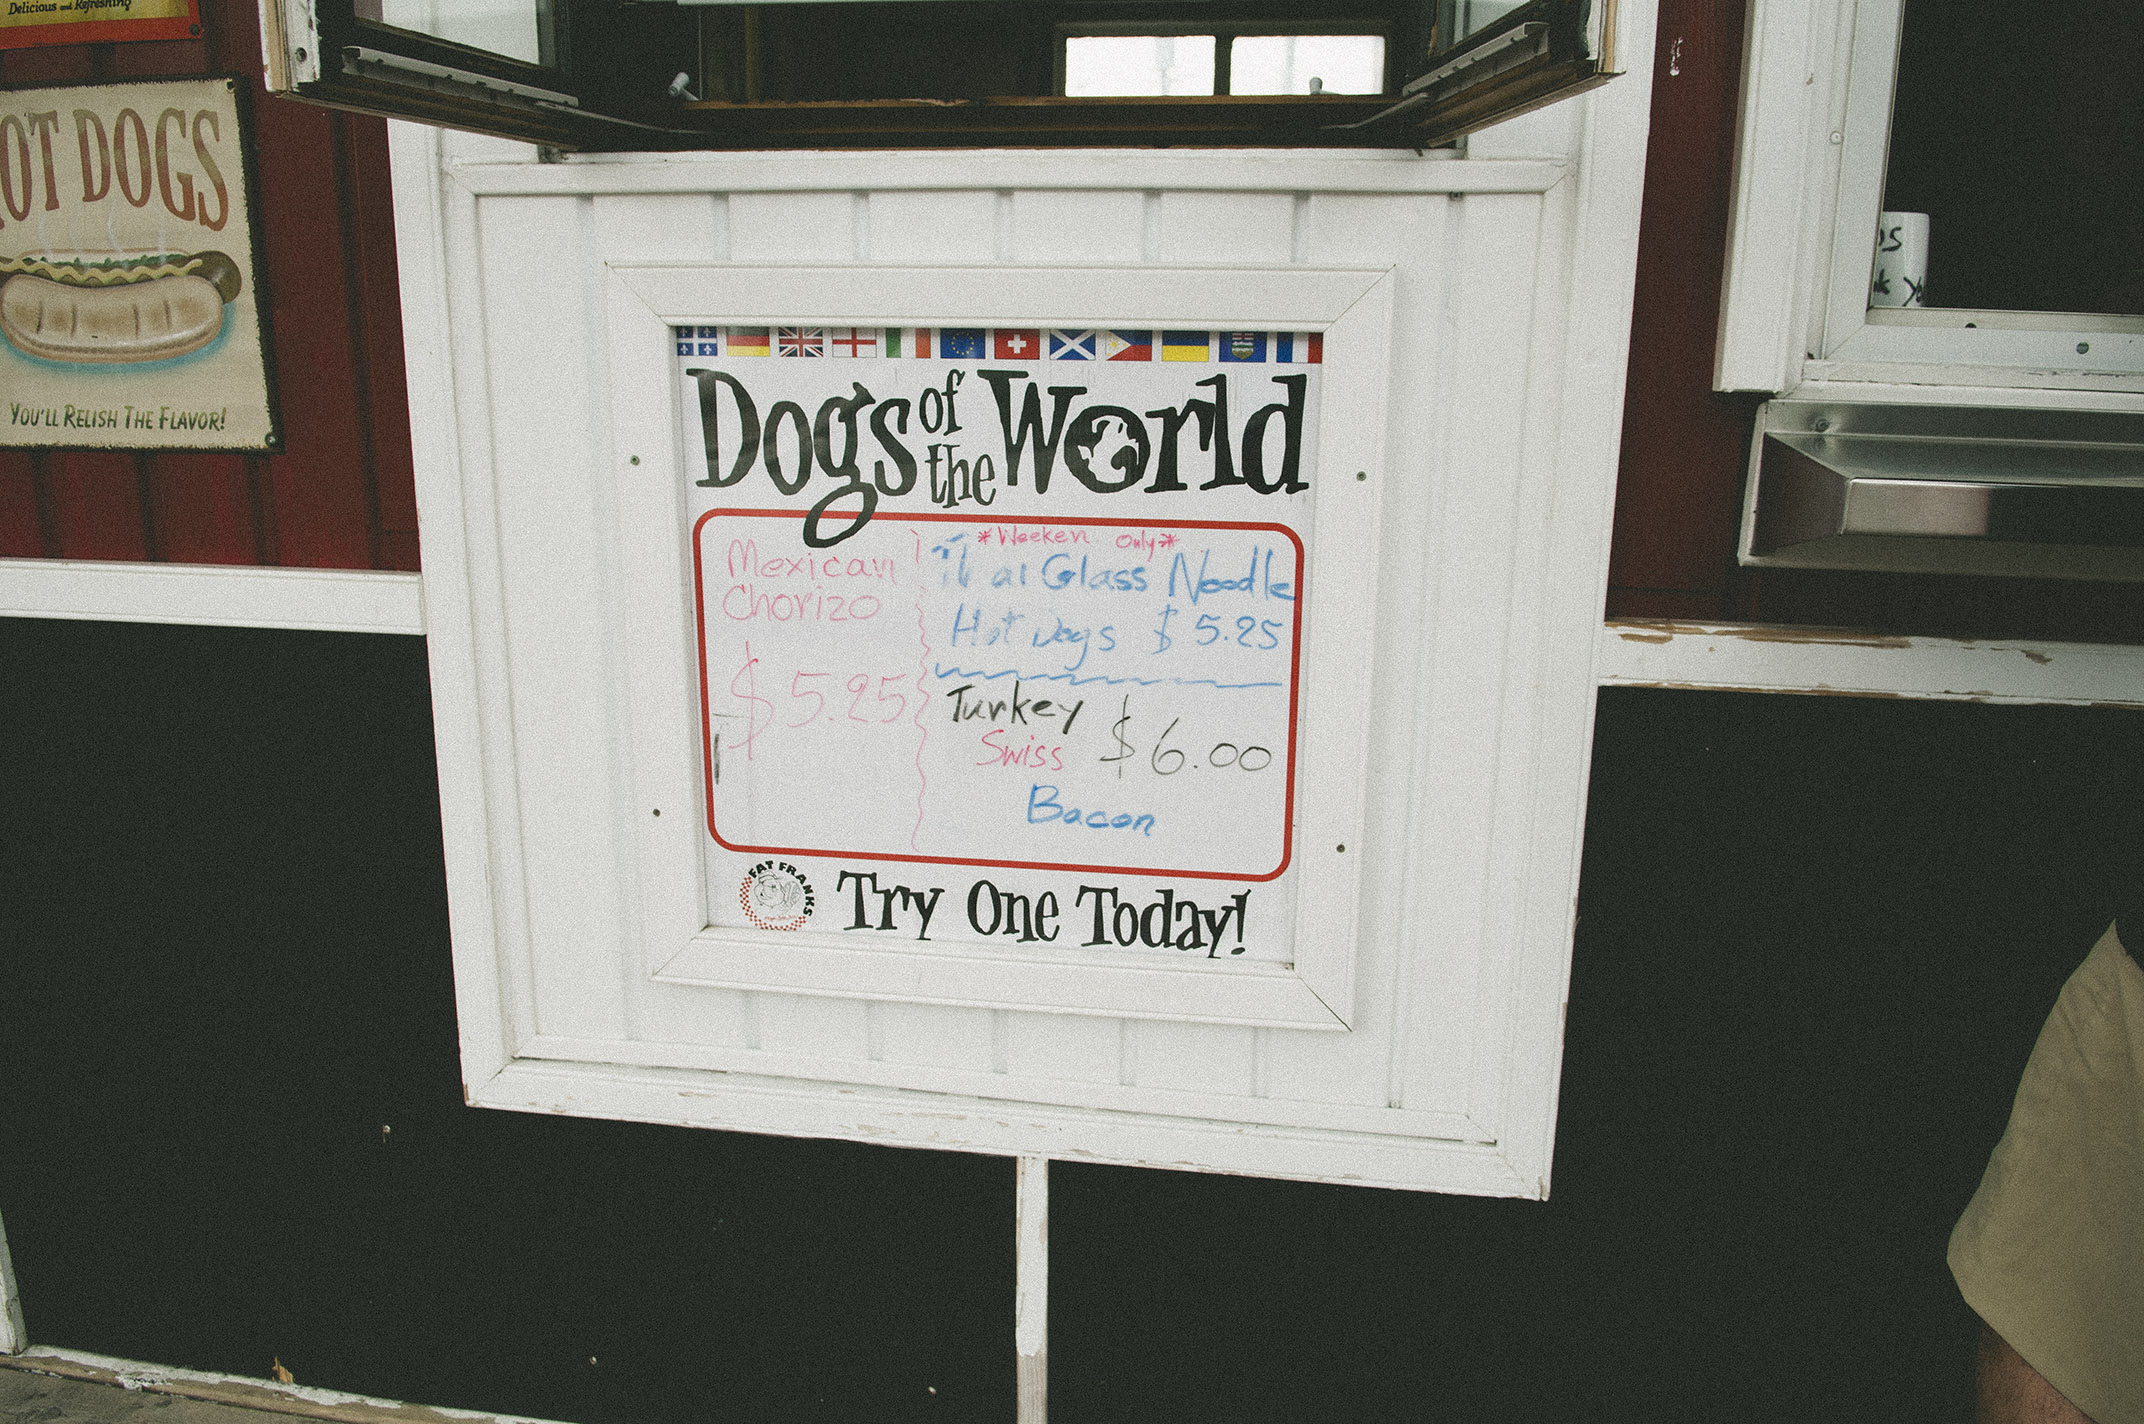 Delicious and Refreshing
OT DOGS
YOU'LL RELISH THE FLAVOR!
Dogs of the World
Mexican
Chorizo
$5.25
*Weeken Only*
Thai Glass Noodle
Hot Dogs $5.25
Turkey
Swiss
$6.00
Bacon
FAT FRANKS
Try One Today!